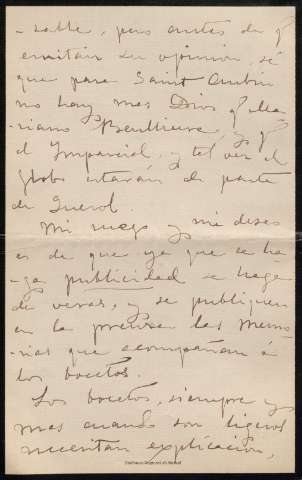 -sable, pero antes de q
emitan su opinion, sé
que para Saint Aubin
no hay mas Dios q Ma-
riano Benlliure, y q
el Imparcial, y tal vez el
Globo estarán de parte
de Querol.
Mi ruego y mi deseo
es de que ya que se ha-
-ga publicidad se haga
de veras, y se publiquen
en la prensa las memo-
-rias que acompañan á
los bocetos.
Los bocetos, siempre y
mas cuando son ligeros
necesitan explicacion,